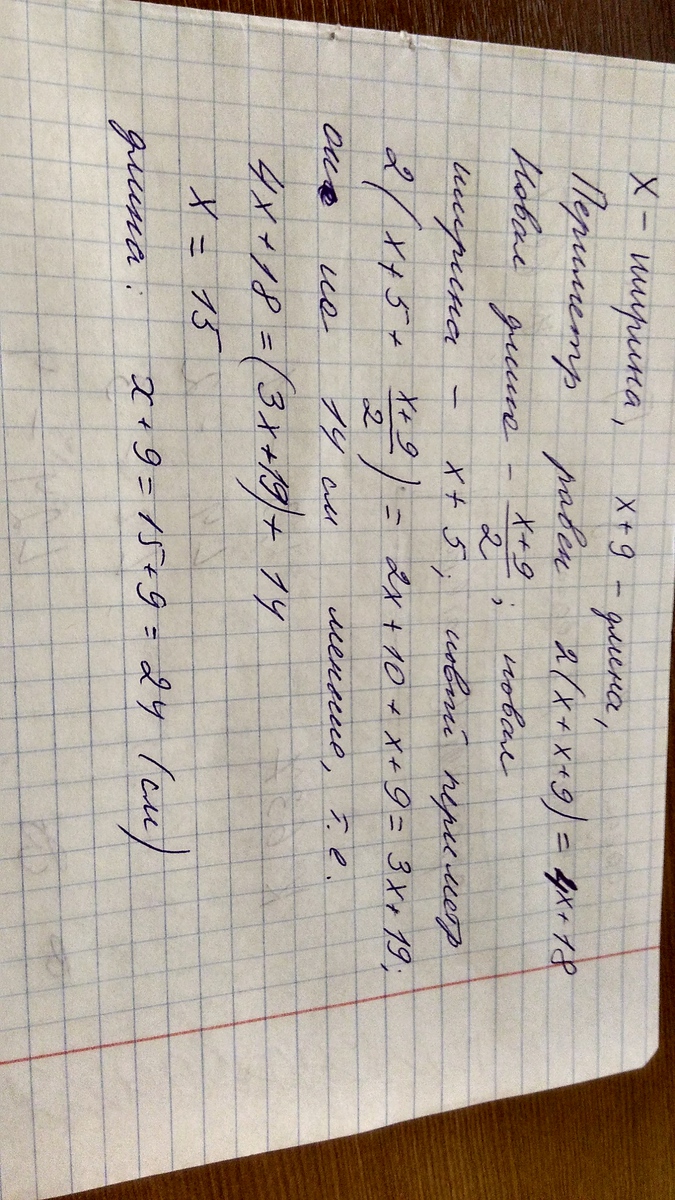 X – ширина, x+9 – длина,
Периметр равен 2(x+x+9) = 4x+18
Новая длина – \frac{x+9}{2}; новая
ширина – x+5; новый периметр
2(x+5+\frac{x+9}{2}) = 2x+10+x+9=3x+19;
он на 14 см меньше, т.е.
4x+18=(3x+19)+14
x = 15
длина: x+9=15+9=24 (см)